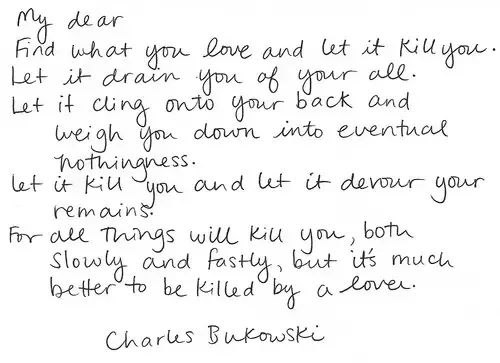 My dear
Find what you love and let it kill you.
Let it drain you of your all.
Let it cling onto your back and
weigh you down into eventual
nothingness.
Let it kill you and let it devour your
remains.
For all things will kill you, both
slowly and fastly, but it's much
better to be killed by a lover.
Charles Bukowski